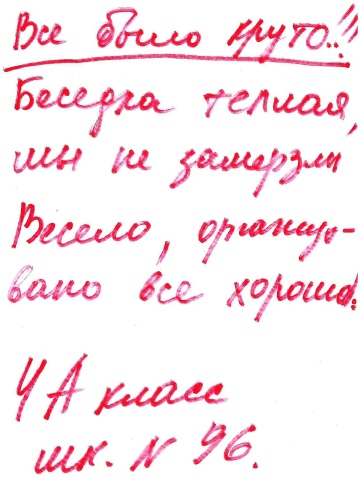 Все было круто..!!
Беседка теплая,
мы не замерзли
Весело, организо-
вано все хорошо!
4 А класс
шк. № 96.